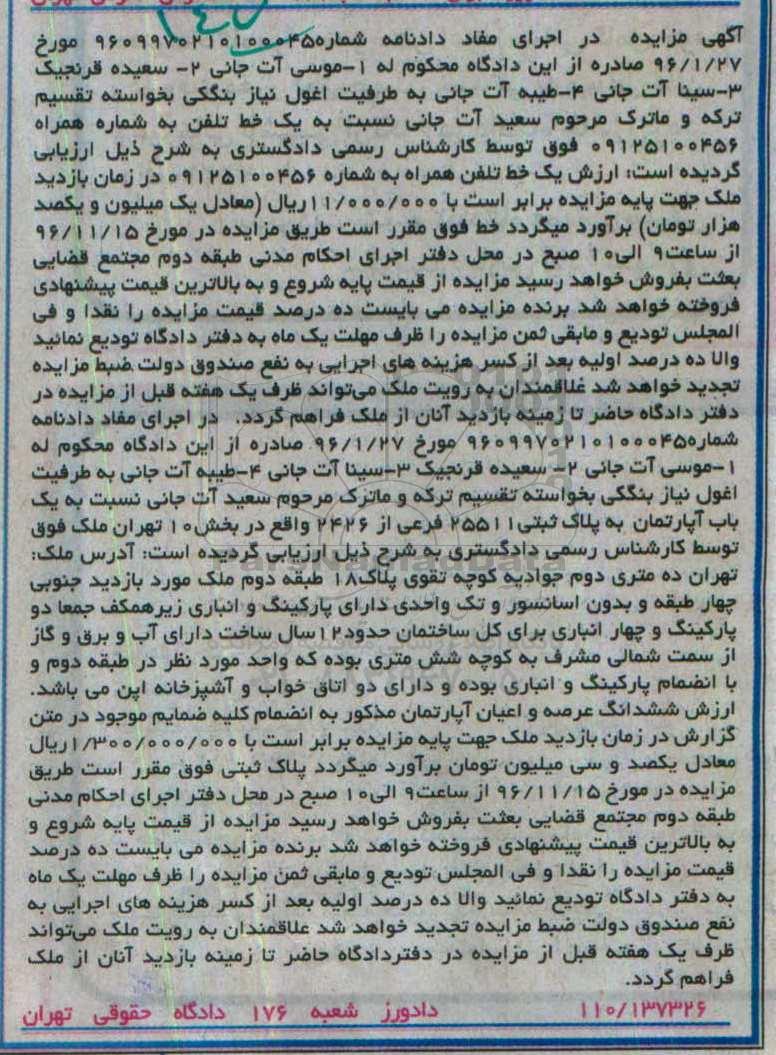 آگهی مزایده در اجرای مفاد دادنامه شماره۹۶۰۹۹۷۰۲۱۰۱۰۰۰۴۵ مورخ
۹۶/۱/۲۷ صادره از این دادگاه محکوم له ۱-موسی آت جانی ۲- سعیده قرنجیک
۳-سینا آت جانی ۴-طیبه آت جانی به طرفیت اغول نیاز بنگکی بخواسته تقسیم
ترکه و ماترک مرحوم سعید آت جانی نسبت به یک خط تلفن به شماره همراه
۰۹۱۲۵۱۰۰۴۵۶ فوق توسط کارشناس رسمی دادگستری به شرح ذیل ارزیابی
گردیده است: ارزش یک خط تلفن همراه به شماره ۰۹۱۲۵۱۰۰۴۵۶ در زمان بازدید
ملک جهت پایه مزایده برابر است با ۱۱/۰۰۰/۰۰۰ریال (معادل یک میلیون و یکصد
هزار تومان) برآورد میگردد خط فوق مقرر است طریق مزایده در مورخ ۹۶/۱۱/۱۵
از ساعت۹ الی۱۰ صبح در محل دفتر اجرای احکام مدنی طبقه دوم مجتمع قضایی
بعثت بفروش خواهد رسید مزایده از قیمت پایه شروع و به بالاترین قیمت پیشنهادی
فروخته خواهد شد برنده مزایده می بایست ده درصد قیمت مزایده را نقدا و فی
المجلس تودیع و مابقی ثمن مزایده را ظرف مهلت یک ماه به دفتر دادگاه تودیع نمائید
والا ده درصد اولیه بعد از کسر هزینه های اجرایی به نفع صندوق دولت ضبط مزایده
تجدید خواهد شد علاقمندان به رویت ملک می‌تواند ظرف یک هفته قبل از مزایده در
دفتر دادگاه حاضر تا زمینه بازدید آنان از ملک فراهم گردد. در اجرای مفاد دادنامه
شماره۹۶۰۹۹۷۰۲۱۰۱۰۰۰۴۵ مورخ ۹۶/۱/۲۷ صادره از این دادگاه محکوم له
۱-موسی آت جانی ۲- سعیده قرنجیک ۳-سینا آت جانی ۴-طیبه آت جانی به طرفیت
اغول نیاز بنگکی بخواسته تقسیم ترکه و ماترک مرحوم سعید آت جانی نسبت به یک
باب آپارتمان به پلاک ثبتی۲۵۵۱۱ فرعی از ۲۴۲۶ واقع در بخش۱۰ تهران ملک فوق
توسط کارشناس رسمی دادگستری به شرح ذیل ارزیابی گردیده است: آدرس ملک:
تهران ده متری دوم جوادیه کوچه تقوی پلاک۱۸ طبقه دوم ملک مورد بازدید جنوبی
چهار طبقه و بدون اسانسور و تک واحدی دارای پارکینگ و انباری زیرهمکف جمعا دو
پارکینگ و چهار انباری برای کل ساختمان حدود۱۲سال ساخت دارای آب و برق و گاز
از سمت شمالی مشرف به کوچه شش متری بوده که واحد مورد نظر در طبقه دوم و
با انضمام پارکینگ و انباری بوده و دارای دو اتاق خواب و آشپزخانه اپن می باشد.
ارزش ششدانگ عرصه و اعیان آپارتمان مذکور به انضمام کلیه ضمایم موجود در متن
گزارش در زمان بازدید ملک جهت پایه مزایده برابر است با ۱/۳۰۰/۰۰۰/۰۰۰ریال
معادل یکصد و سی میلیون تومان برآورد میگردد پلاک ثبتی فوق مقرر است طریق
مزایده در مورخ ۹۶/۱۱/۱۵ از ساعت۹ الی۱۰ صبح در محل دفتر اجرای احکام مدنی
طبقه دوم مجتمع قضایی بعثت بفروش خواهد رسید مزایده از قیمت پایه شروع و
به بالاترین قیمت پیشنهادی فروخته خواهد شد برنده مزایده می بایست ده درصد
قیمت مزایده را نقدا و فی المجلس تودیع و مابقی ثمن مزایده را ظرف مهلت یک ماه
به دفتر دادگاه تودیع نمائید والا ده درصد اولیه بعد از کسر هزینه های اجرایی به
نفع صندوق دولت ضبط مزایده تجدید خواهد شد علاقمندان به رویت ملک می‌تواند
ظرف یک هفته قبل از مزایده در دفتردادگاه حاضر تا زمینه بازدید آنان از ملک
فراهم گردد.
۱۱۰/۱۳۷۳۲۶ دادورز شعبه ۱۷۶ دادگاه حقوقی تهران